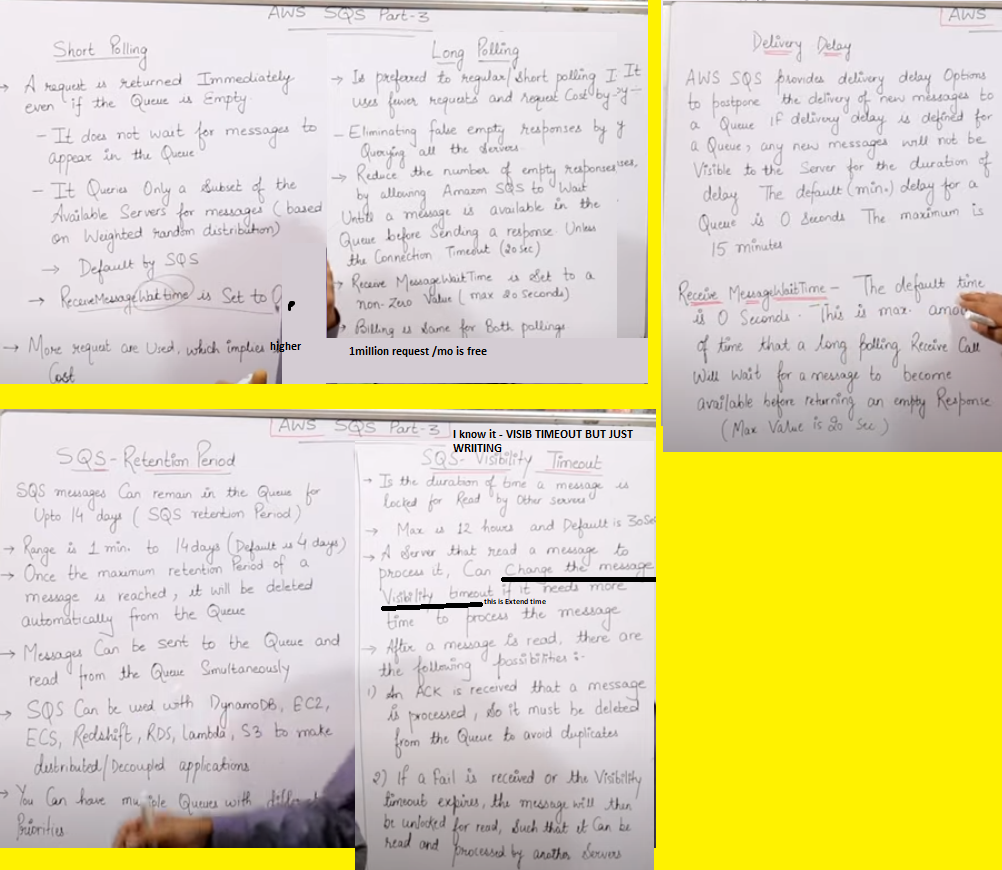 AWS SQS Part-3
Short Polling
→ A request is returned Immediately
even if the Queue is Empty
- It does not wait for messages to
appear in the Queue
- It Queries Only a Subset of the
Available Servers for messages (based
on Weighted random distribution)
→ Default by SQS
→ ReceiveMessageWaittime is Set to
→ More request are Used, which implies higher
Cost
Long Polling
→ Is preferred to regular/Short polling I It
uses fewer requests and request Cost by
- Eliminating false empty responses by
Querying all the Servers
→ Reduce the number of empty responses
by allowing Amazon SQS to Wait
Until a message is available in the
Queue before Sending a response. Unless
the Connection Timeout (20sec)
→ Receive MessageWaitTime is Set to a
non-zero Value (max 20 Seconds)
→ Billing is Same for Both pollings
1million request /mo is free
AWS
Delivery Delay
AWS SQS provides delivery delay Options
to postpone the delivery of new messages to
a Queue If delivery delay is defined for
a Queue, any new messages will not be
Visible to the Server for the duration of
delay The default (min.) delay for a
Queue is 0 Seconds The maximum is
15 minutes
Receive MessageWaitTime - The default time
is 0 Seconds. This is max.
of time that a long polling Receive Call
Will wait for a message to become
available before returning an empty Response
(Max Value is 20 Sec)
AWS SQS Part-3
SQS - Retention Period
SQS messages Can remain in the Queue for
Upto 14 days (SQS retention Period)
→ Range is 1 min. to 14 days (Default is 4 days)
→ Once the maximum retention Period of a
message is reached, it will be deleted
automatically from the Queue
→ Messages Can be sent to the Queue and
read from the Queue Simultaneously
→ SQS Can be used with DynamoDB, EC2,
ECS, Redshift, RDS, Lambda, S3 to make
distributed/Decoupled applications
→ You Can have Queues with
Priorities
I know it - VISIB TIMEOUT BUT JUST
WRIITING
SQS- Visibility Timeout
→ Is the duration of time a message is
locked for Read by Other servers
→ Max is 12 hours and Default is 30Se
→ A Server that read a message to
process it, Can Change the message
Visibility timeout if it needs more
this is Extend time
time to process the message
→ After a message is read, there are
the following possibilities :-
1) An ACK is received that a message
is processed, So it must be deleted
from the Queue to avoid duplicates
2) If a Fail is received or the Visibility
timeout expires, the message will then
be unlocked for read, Such that it Can be
read and processed by another Servers